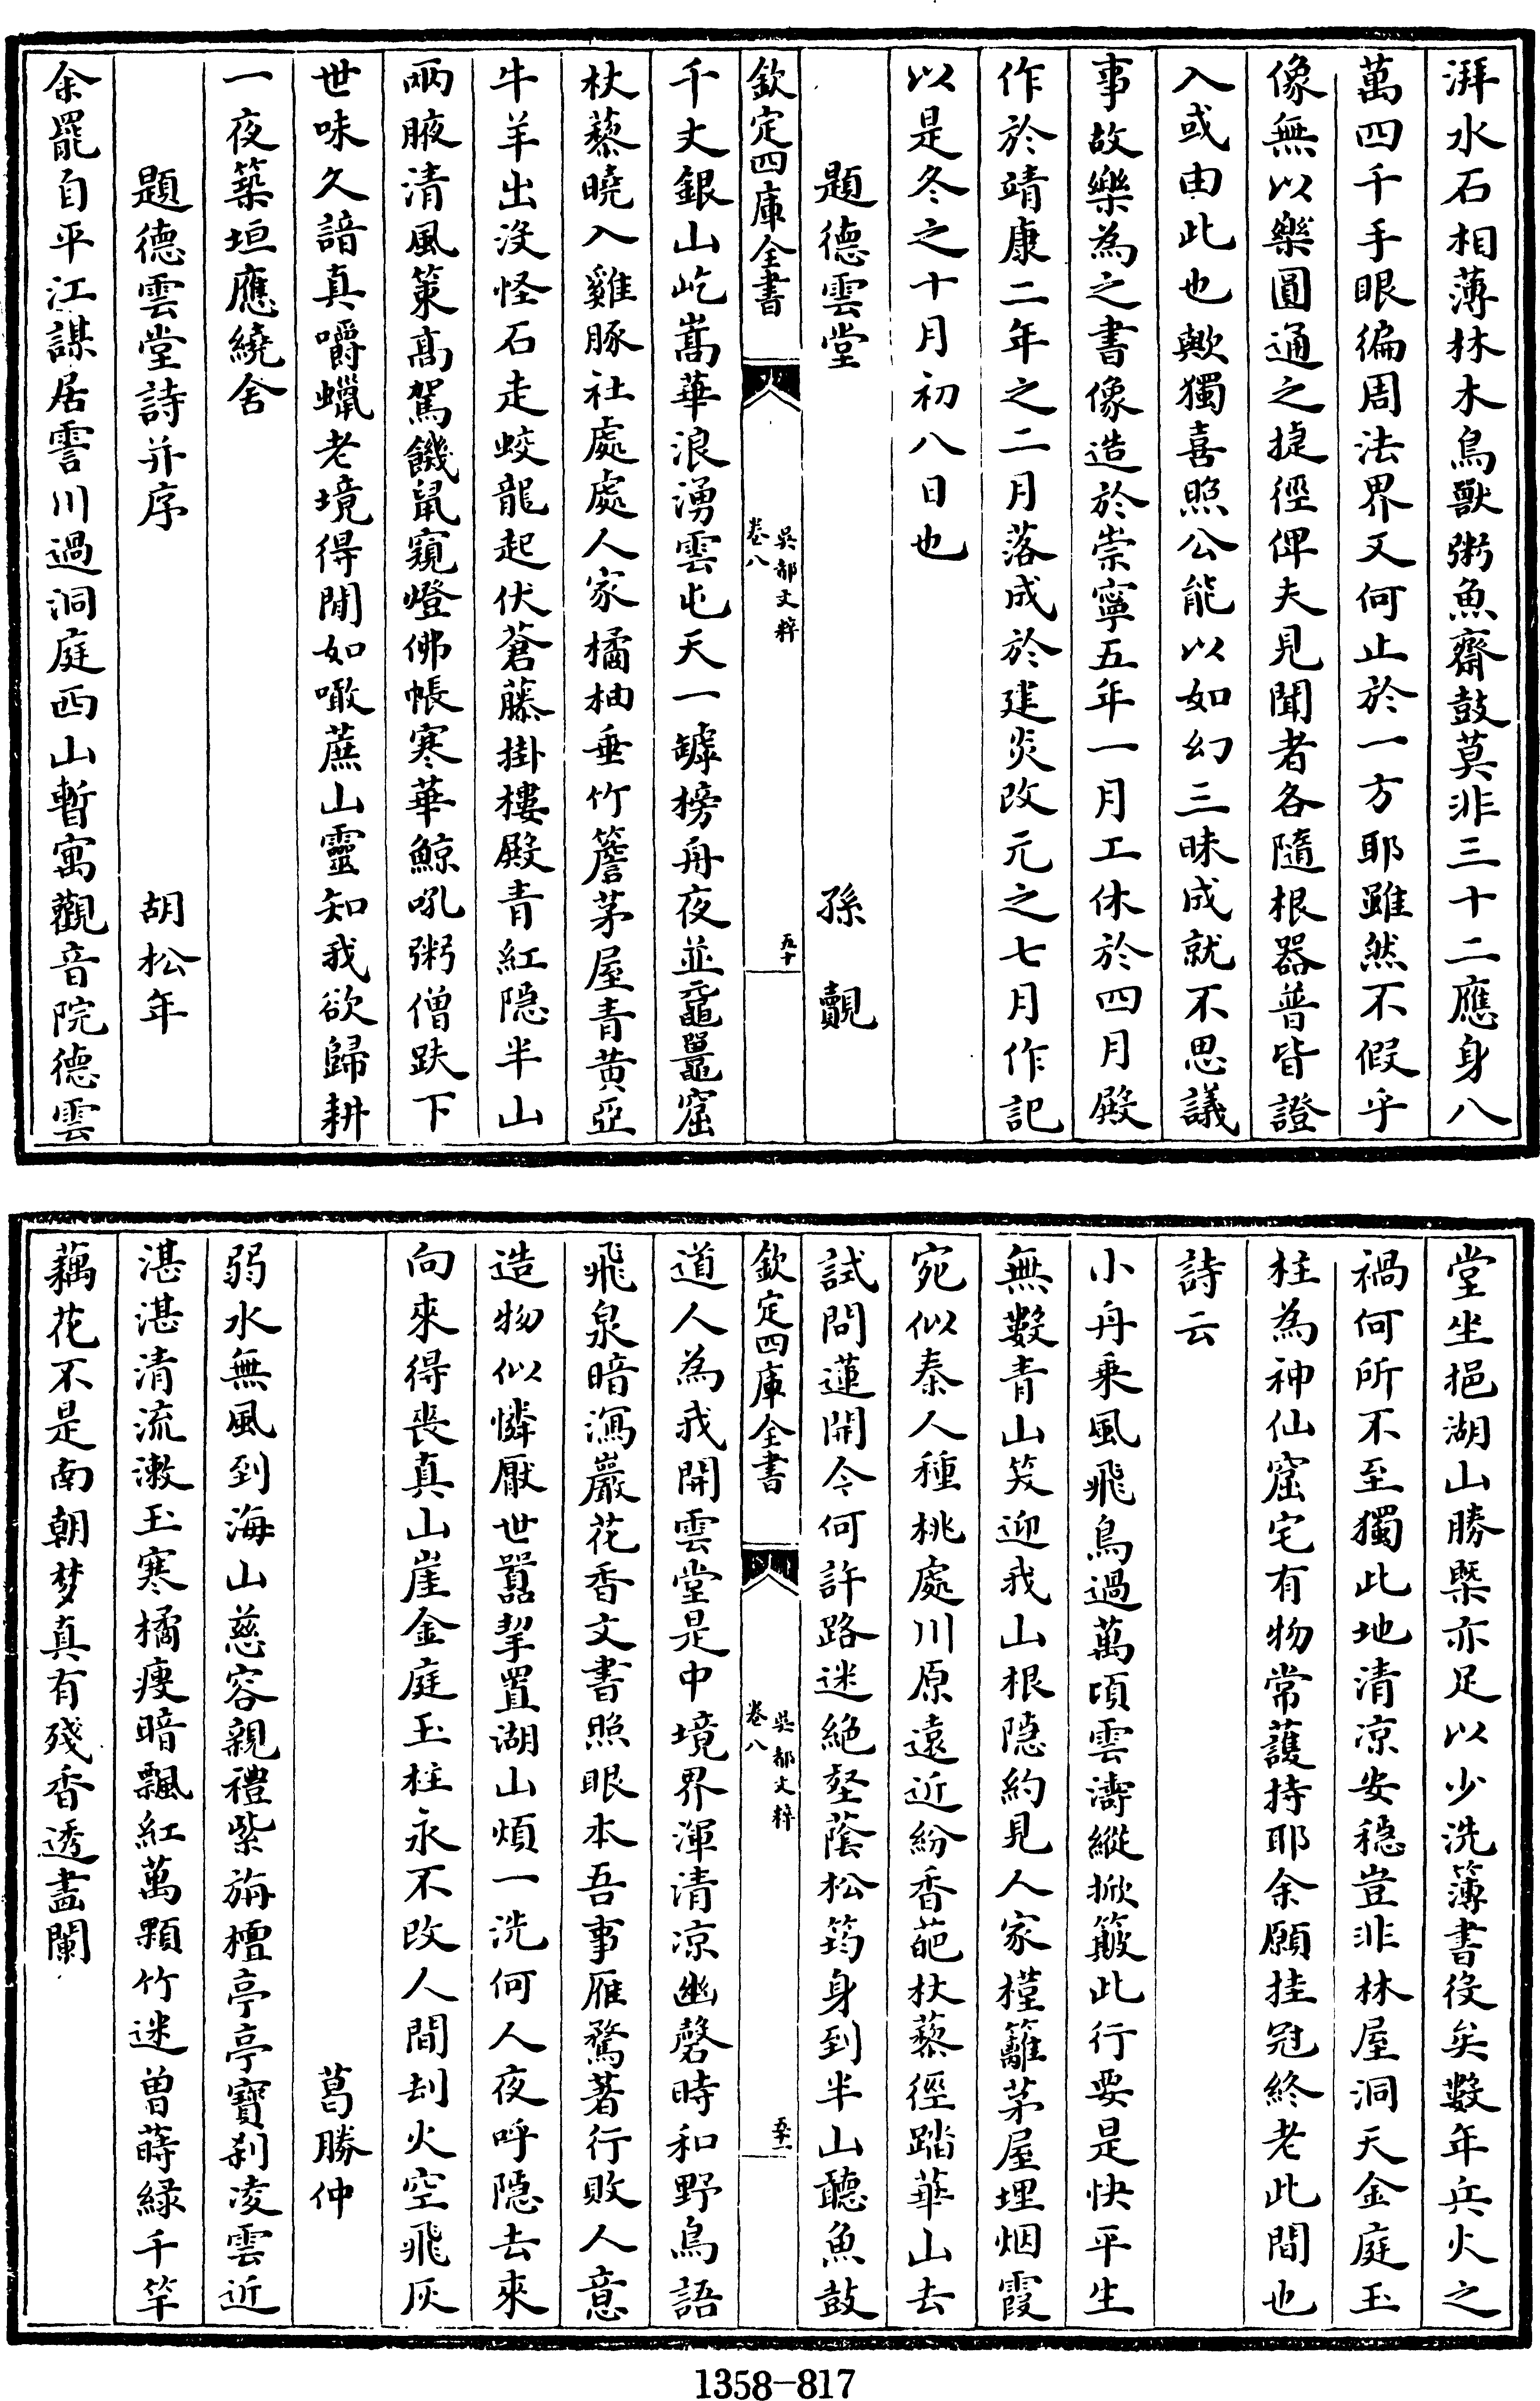 湃水石相薄林木鳥獸粥魚齋鼓莫非三十二應身八
萬四千手眼徧周法界又何止於一方耶雖然不假乎
像無以樂圓通之捷徑俾夫見聞者各隨根器普皆證
入或由此也歟獨喜照公能以如幻三昧成就不思議
事故樂為之書像造於崇寧五年一月工休於四月殿
作於靖康二年之二月落成於建炎改元之七月作記
以是冬之十月初八日也
題德雲堂 孫覿
欽定四庫全書 吳都文粹 卷八 五十
千丈銀山屹嵩華浪湧雲屯天一罅榜舟夜並黿鼉窟
杖藜曉入雞豚社處處人家橘柚垂竹簷茅屋青黄亞
牛羊出沒怪石走蛟龍起伏蒼藤掛樓殿青紅隠半山
兩腋清風策髙駕饑鼠窺燈佛帳寒華鯨吼粥僧趺下
世味久諳真嚼蠟老境得閒如噉蔗山靈知我欲歸耕
一夜築垣應繞舍
題德雲堂詩并序 胡松年
余罷自平江謀居霅川過洞庭西山暫寓觀音院德雲
堂坐挹湖山勝槩亦足以少洗簿書役矣數年兵火之
禍何所不至獨此地清凉安穏豈非林屋洞天金庭玉
柱為神仙窟宅有物常護持耶余願挂冠終老此間也
詩云
小舟乘風飛鳥過萬頃雲濤縱掀簸此行要是快平生
無數青山笑迎我山根隠約見人家槿籬茅屋埋烟霞
宛似秦人種桃處川原遠近紛香葩杖藜徑踏華山去
試問蓮開今何許路迷絕壑蔭松筠身到半山聽魚鼓
欽定四庫全書 吳都文粹 卷八 五十一
道人為我開雲堂是中境界渾清凉幽磬時和野鳥語
飛泉暗瀉巖花香文書照眼本吾事雁騖著行敗人意
造物似憐厭世囂挈置湖山煩一洗何人夜呼隠去來
向來得喪真山崖金庭玉柱永不改人間刦火空飛灰
葛勝仲
弱水無風到海山慈容親禮紫旃檀亭亭寶刹凌雲近
湛湛清流漱玉寒橘瘦暗飄紅萬顆竹迷曽蒔緑千竿
藕花不是南朝梦真有殘香透畫闌
1358-817